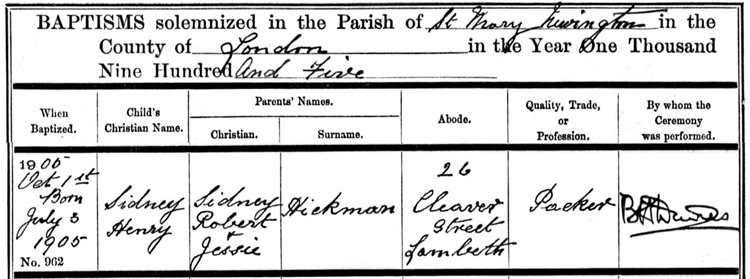 BAPTISMS solemnized in the Parish of St Mary Newington in the
County of London in the Year One Thousand
Nine Hundred And Five
When Baptized.
Child's Christian Name.
Parents' Names.
Christian.
Surname.
Abode.
Quality, Trade, or Profession.
By whom the Ceremony was performed.
1905
Oct 1st
Born
July 3
1905
No. 962
Sidney
Henry
Sidney
Robert
+
Jessie
Hickman
26
Cleaver
Street
Lambeth
Packer